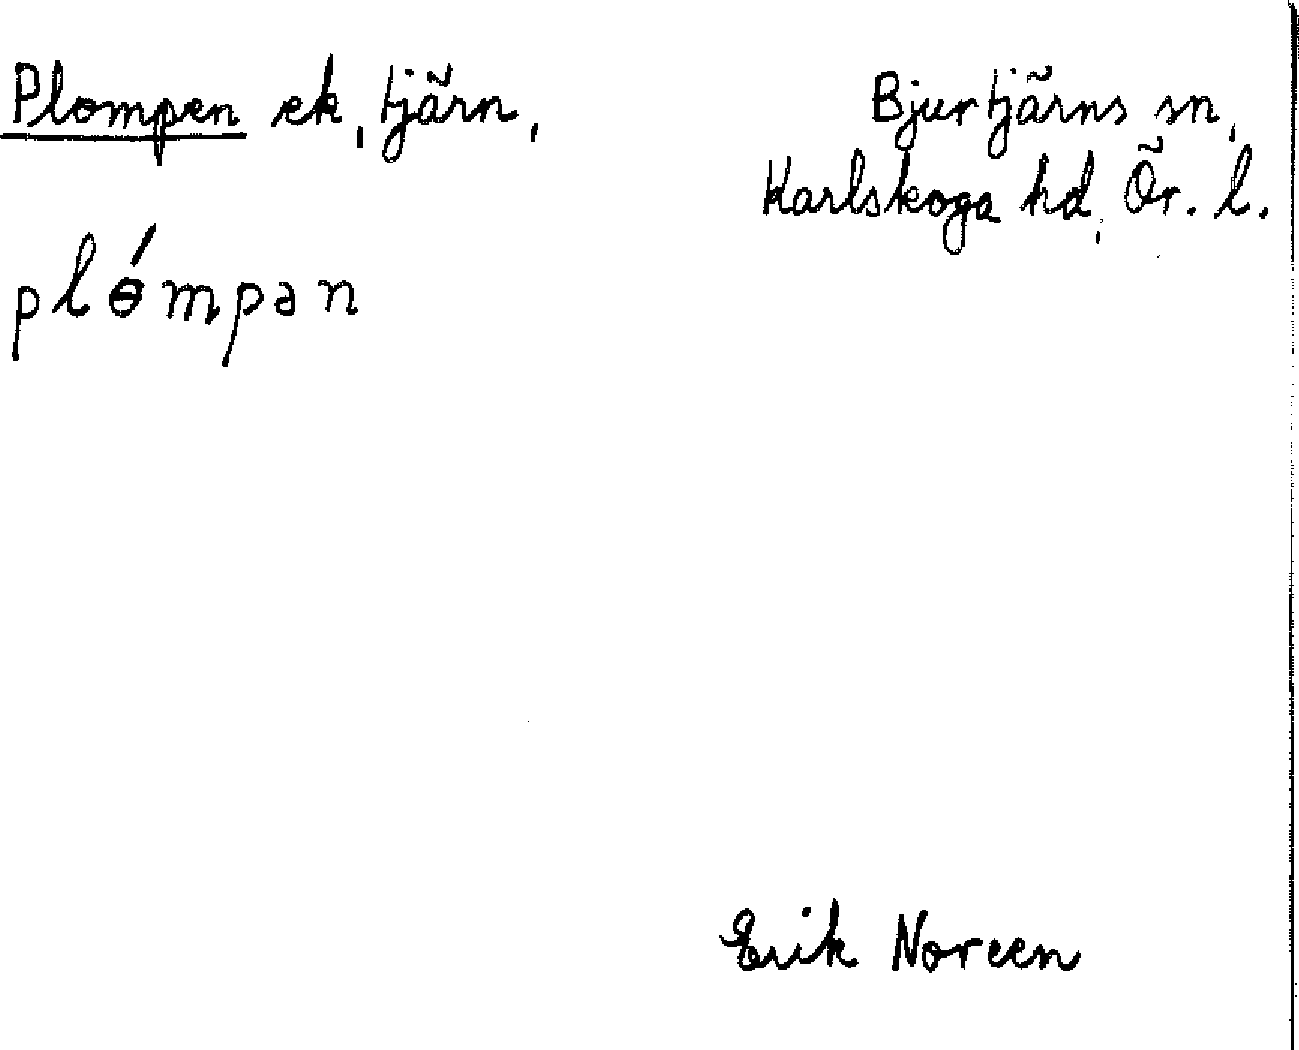 Plompen ek, tjärn,
Bjurtjärns sn,
Karlskoga hd, Ör. l.
plɵ́mpən
Erik Noreen